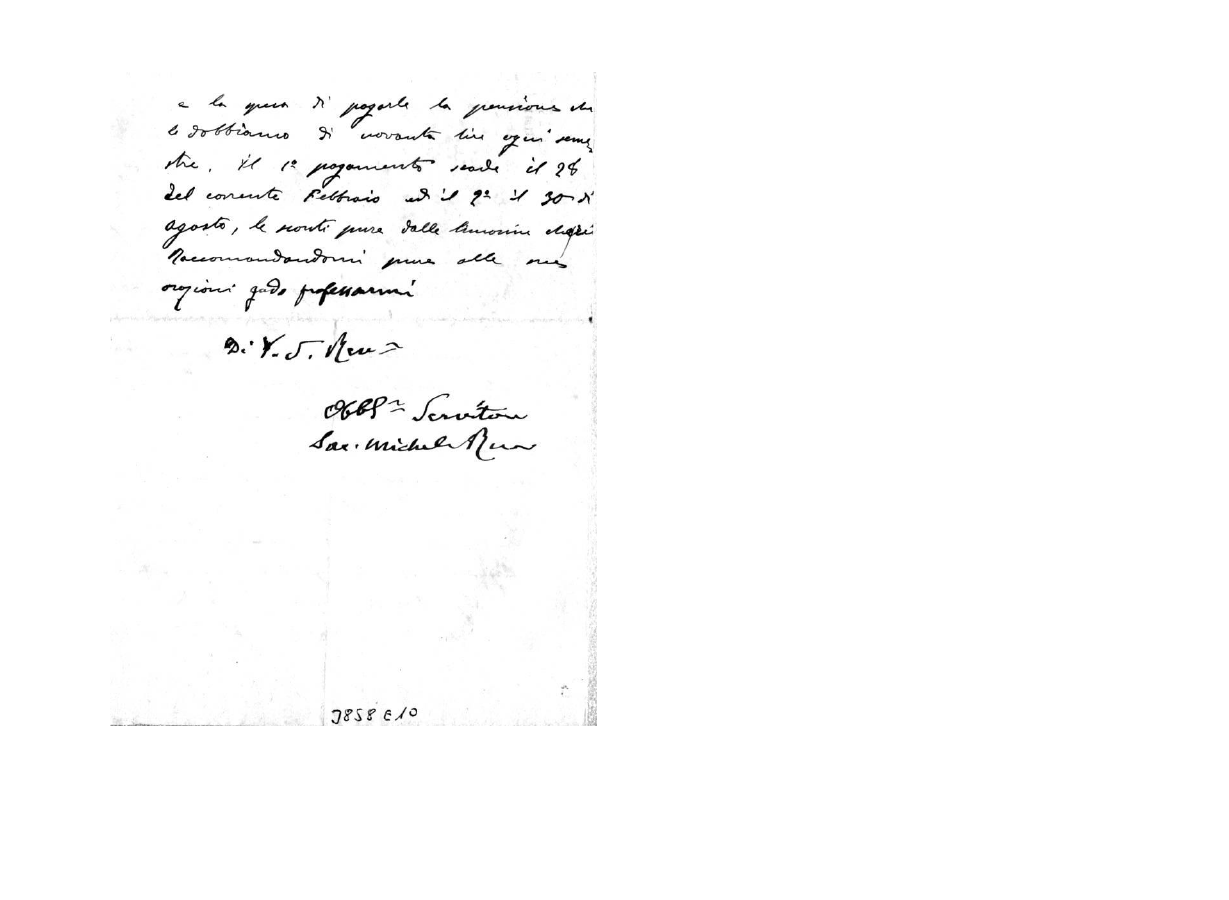 e la prega di pagarle la pensione che
le dobbiamo di novanta lire ogni seme
stre. Il 1º pagamento scade il 28
del corrente Febbraio ed il 2º il 30 di
agosto, le sconti pure dalle limosine
Raccomandandomi pure alle sue
orazioni godo professarmi
Di V. S. Rev
Obbl Servitore
Sac. Michele Rua
3858 E10